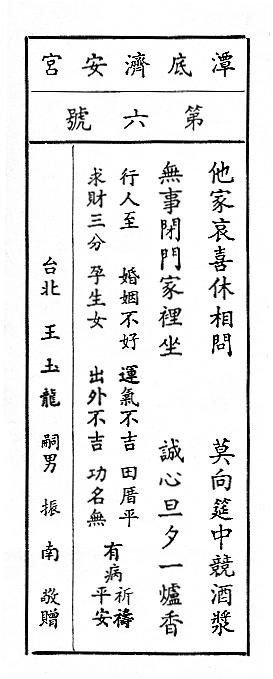 潭底濟安宮
第六號
他家哀喜休相問　莫向筵中競酒漿
無事閉門家裡坐　誠心旦夕一爐香
行人至　婚姻不好　運氣不吉　田厝平
求財三分　孕生女　出外不吉　功名無
有病祈禱平安
台北　王玉龍　嗣男　振南　敬贈